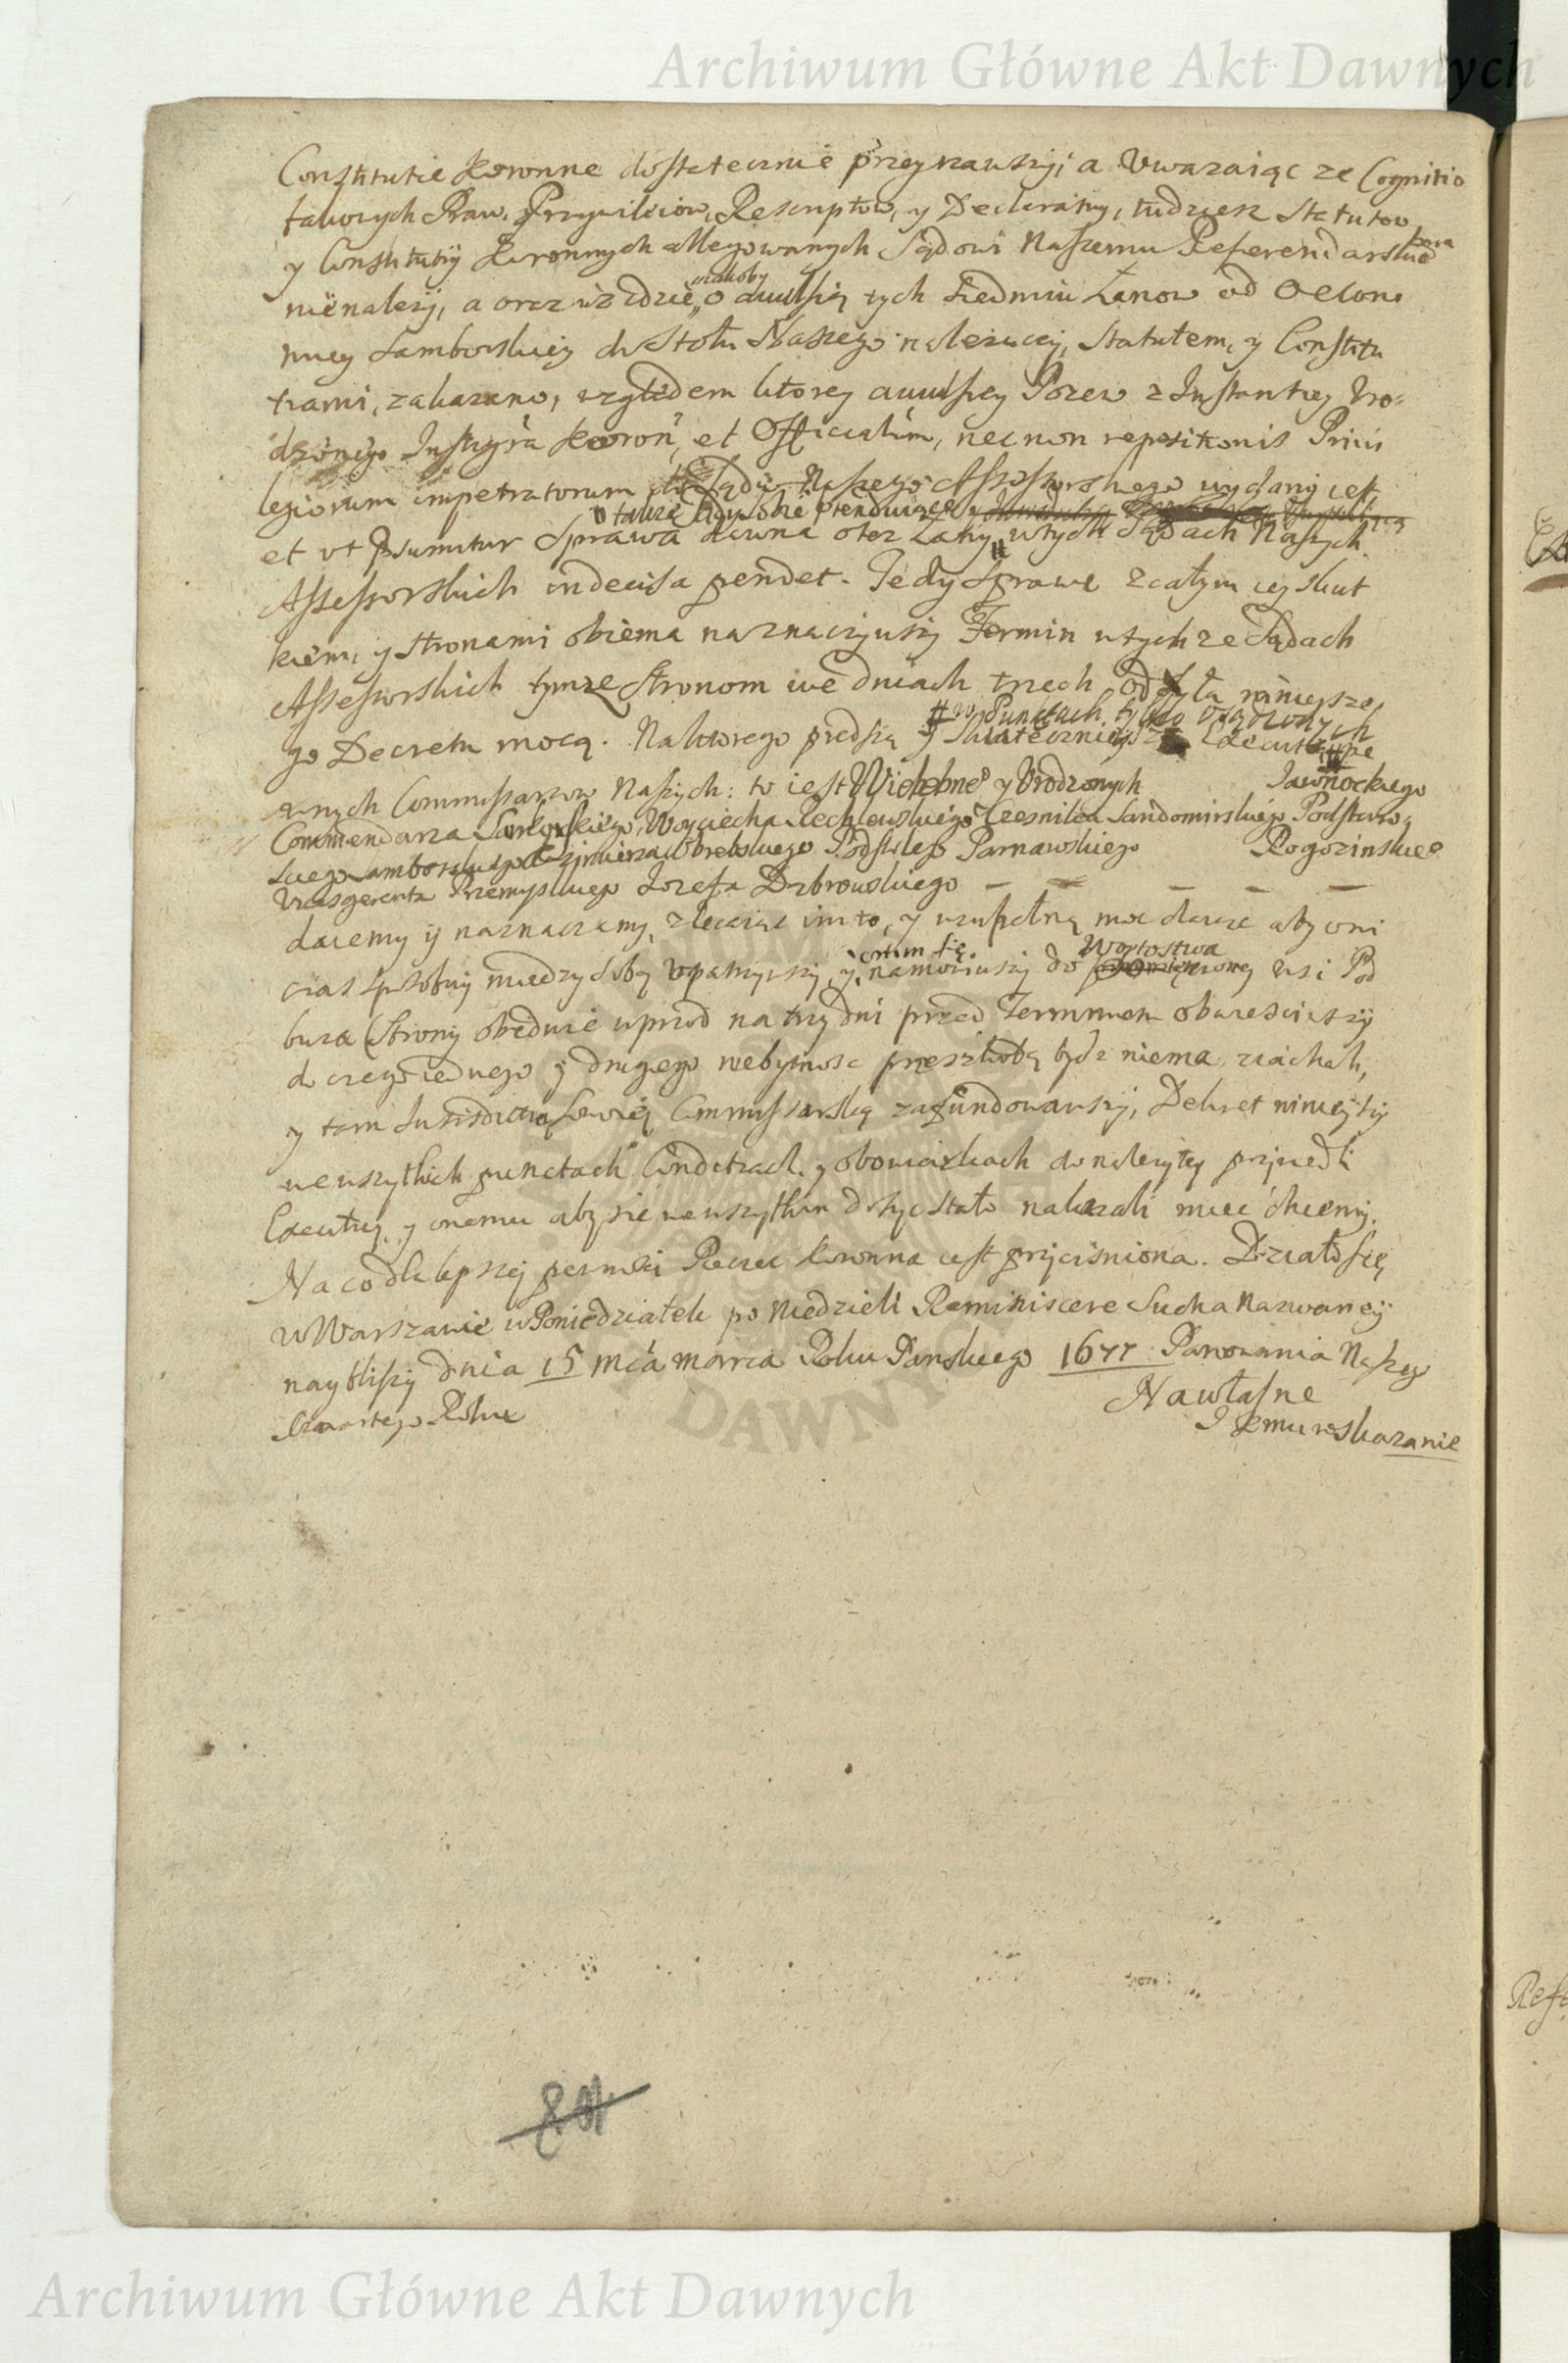 Archiwum Główne Akt Dawnych
Constitutie Koronne dostatecznie przeyrzawszy, a Uwazaiąc ze Cognitio
takowych Praw, Przywileiow, Rescriptow, y Declaratiy, tudziesz Statutow
y Constitutiy Koronnych allegowanych Sądowi Naszemu Referendarskie
nienalezy, a oraz iz idzie iakoby o avulsią tych Siedmiu Łanow od Oekono
miey Samborskiey do Stołu Naszego nalezacey, Statutem, y Constitu
tiami, zakazano, względem ktorey avulsiey Pozew z Instantiey Uro=
dzonego Instigra Koron, et Officialium, nec non repositionis Privi
legiorum impetratorum do Sądu Naszego Assessorskiego wydany iest
o takze
et ut Psumitur Sprawa dawna otez Łany w tych Sądach Naszych
Assessorskich indecisa pendet. Tedy Sprawę z całym iey skut
kiem, y stronami obiema naznaczywszy Termin w tychze Sądach
Assessorskich tymze Stronom we dniach trzech odsyła ninieysze
# w Punctach tylko osądzonych
go Decretu mocą. Na ktorego prędszą y skutecznieyszą Executią pe
wnych Commissarzow Naszych: to iest Wielebne° y Urodzonych Jawnockiego
Commendarza, Woyciecha Pechlewskiego Czesnika Sandomirskiego Podstaro=
sciego Samborskiego Kazimierza Wobrebskiego Podstolego Parnawskiego Rogozinskiego
Vicesgerenta Przemyskiego Jozefa Dąbrowskiego
daiemy y naznaczamy, zlecaiąc im to, y zupełną moc daiąc aby oni
czas sposobny między sobą upatrzywszy, y onim się namowiwszy do Woytostwa wsi Pod
buza Strony obedwie wprzod na trzy dni przed Terminem obwiesciwszy
do czego iednego y drugego niebytnosc przeszkodą bydz niema ziachali,
y tam Jurisdictią Swoią Commissarską zafundowawszy, Dekret ninieyszy
we wszytkich punctach Conditiach y obowiązkach do nalezytey przywiedli
Executiey, y onemu aby sie we wszytkim dosyc stało nakazali miec chcemy.
Na co dla lepszey pewnosci Pieczec Koronna iest przycisniona. Działo się
w Warszawie w Poniedziałek po Niedzieli Reminiscere Sucha Nazwaney
naybliszy dnia 15 Mca Marca Roku Panskiego 1677 Panowania Naszego
Czwartego Roku
Na własne
J K mci roskazanie
Archiwum Główne Akt Dawnych